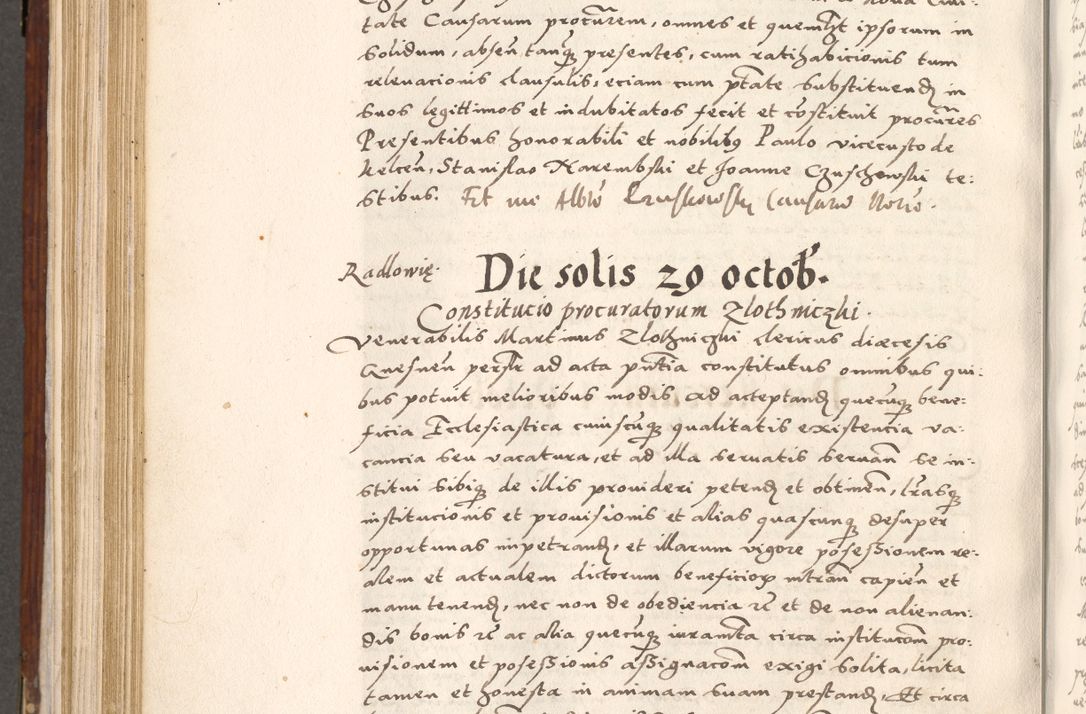 tate Causarum procurem, omnes et quemlibet ipsorum in
solidum, absen tanq presentes, cum ratihabicionis tum
relevacionis clausulis, eciam cum ptate substituend in
suos legittimos et indubitatos fecit et costituit procures
Presentibus honorabili et nobilibq Paulo vicecusto de
Kelcen, Stanislao Karembski et Joanne Czuschowski te:
stibus. Et me Albto Causaru Notio.
Radlowię.
Die solis 29 octob.
Constitucio procuratorum Zlothniczki.
Venerabilis Martinus Zlothniczki clericus diæcesis
Gnesnen persr ad acta pntia constitutus omnibus qui:
bus potuit melioribus modis ad acceptand quecuq bene:
ficia Ecclesiastica cuiuscuq qualitatis existencia va:
cancia seu vacatura, et ad illa servatis servan se in:
stitui sibiq de illis provideri petend et obtinen, lrasq
institucionis et provisionis et alias quascunq desuper
opportunas impetrand, et illarum vigore posessionem re:
alem et actualem dictorum beneficior intran capien et
manu tenend, nec non de obediencia re et de non alienan:
dis bonis re ac alia quecuq iuramta circa institucom pro:
visionem et posessionis assignacom exigi solita, licita
tamen et honesta in animam suam prestand, Et circa